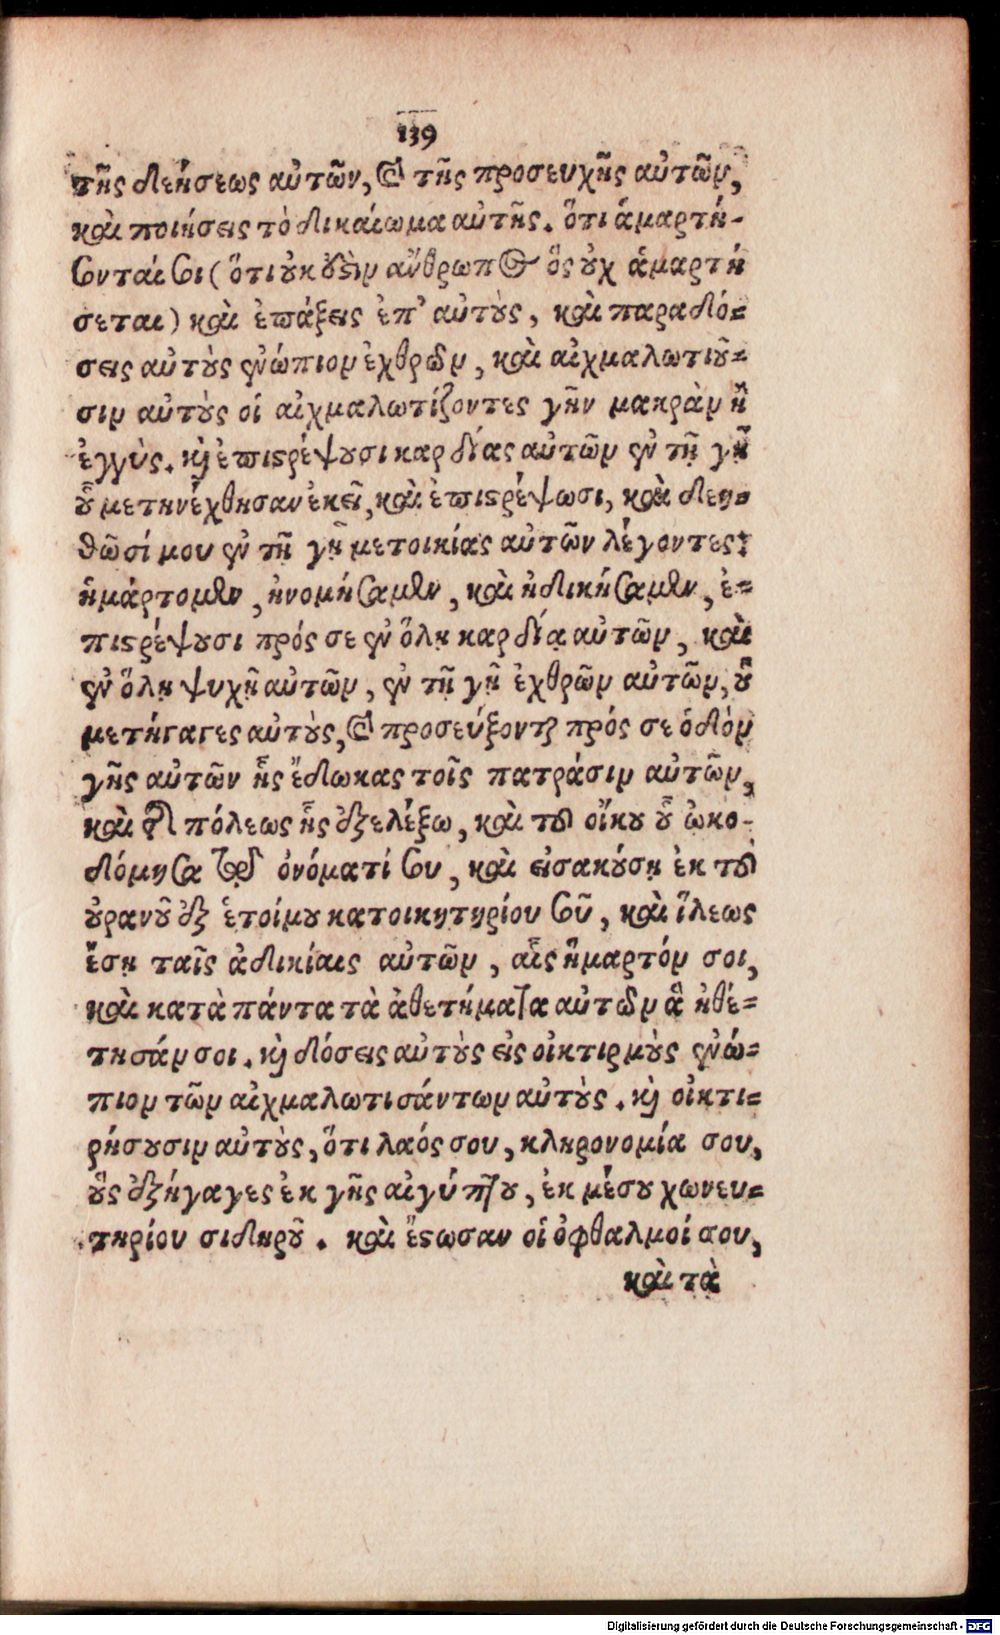 139
τῆς δεήσεως αὐτῶν, καὶ τῆς προσευχῆς αὐτῶν,
καὶ ποιήσεις τὸ δικαίωμα αὐτῆς. ὅτι ἁμαρτή-
σονταί σοι (ὅτι οὐκ ἔσιν ἄνθρωπος ὃς οὐχ ἁμαρτή
σεται) καὶ ἐπάξεις ἐπ' αὐτοὺς, καὶ παραδό-
σεις αὐτοὺς ἐνώπιον ἐχθρῶν, καὶ αἰχμαλωτιοῦ-
σιν αὐτοὺς οἱ αἰχμαλωτίζοντες γῆν μακρὰν ἢ
ἐγγὺς. καὶ ἐπιστρέψουσι καρδίας αὐτῶν ἐν τῇ γῇ
οὗ μετηνέχθησαν ἐκεῖ, καὶ ἐπιστρέψωσι, καὶ δεη-
θῶσί μου ἐν τῇ γῇ μετοικίας αὐτῶν λέγοντες:
ἡμάρτομεν, ἠνομήσαμεν, καὶ ἠδικήσαμεν, ἐ-
πιστρέψουσι πρός σε ἐν ὅλῃ καρδίᾳ αὐτῶν, καὶ
ἐν ὅλῃ ψυχῇ αὐτῶν, ἐν τῇ γῇ ἐχθρῶν αὐτῶν, οὗ
μετήγαγες αὐτοὺς, καὶ προσεύξονται πρός σε ὁδὸν
γῆς αὐτῶν ἧς ἔδωκας τοῖς πατράσιν αὐτῶν,
καὶ τῆς πόλεως ἧς ἐξελέξω, καὶ τοῦ οἴκου οὗ ὠκο-
δόμησα τῷ ὀνόματί σου, καὶ εἰσακούσῃ ἐκ τοῦ
οὐρανοῦ ἐξ ἑτοίμου κατοικητηρίου σοῦ, καὶ ἵλεως
ἔσῃ ταῖς ἀδικίαις αὐτῶν, αἷς ἥμαρτόν σοι,
καὶ κατὰ πάντα τὰ ἀθετήματα αὐτῶν ἃ ἠθέ-
τησάν σοι. καὶ δόσεις αὐτοὺς εἰς οἰκτιρμοὺς ἐνώ-
πιον τῶν αἰχμαλωτισάντων αὐτοὺς. καὶ οἰκτι-
ρήσουσιν αὐτοὺς, ὅτι λαός σου, κληρονομία σου,
οὓς ἐξήγαγες ἐκ γῆς αἰγύπτου, ἐκ μέσου χωνευ-
τηρίου σιδηροῦ. καὶ ἔστωσαν οἱ ὀφθαλμοί σου,
καὶ τὰ
Digitalisierung gefördert durch die Deutsche Forschungsgemeinschaft - DFG